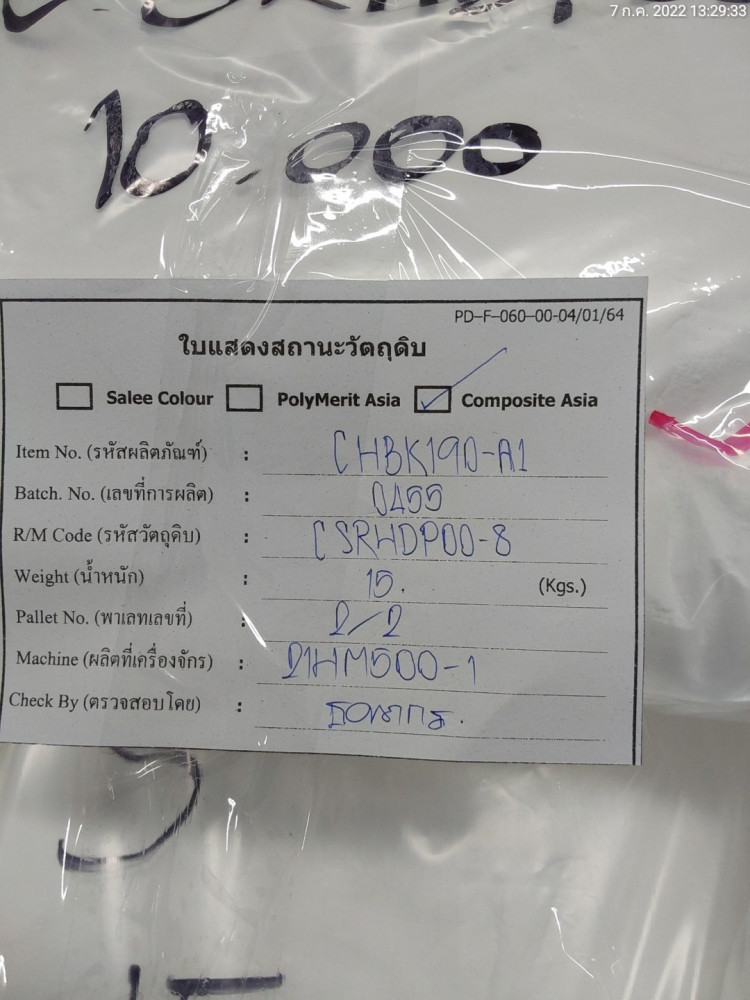 7 ก.ค. 2022 13:29:33
10.000
PD-F-060-00-04/01/64
ใบแสดงสถานะวัตถุดิบ
Salee Colour PolyMerit Asia Composite Asia
Item No. (รหัสผลิตภัณฑ์) : CHBK190-A1
Batch. No. (เลขที่การผลิต) : 0455
R/M Code (รหัสวัตถุดิบ) : CSRHDP00-8
Weight (น้ำหนัก) : 15. (Kgs.)
Pallet No. (พาเลทเลขที่) : 2/2
Machine (ผลิตที่เครื่องจักร) : 21HM500-1
Check By (ตรวจสอบโดย) :